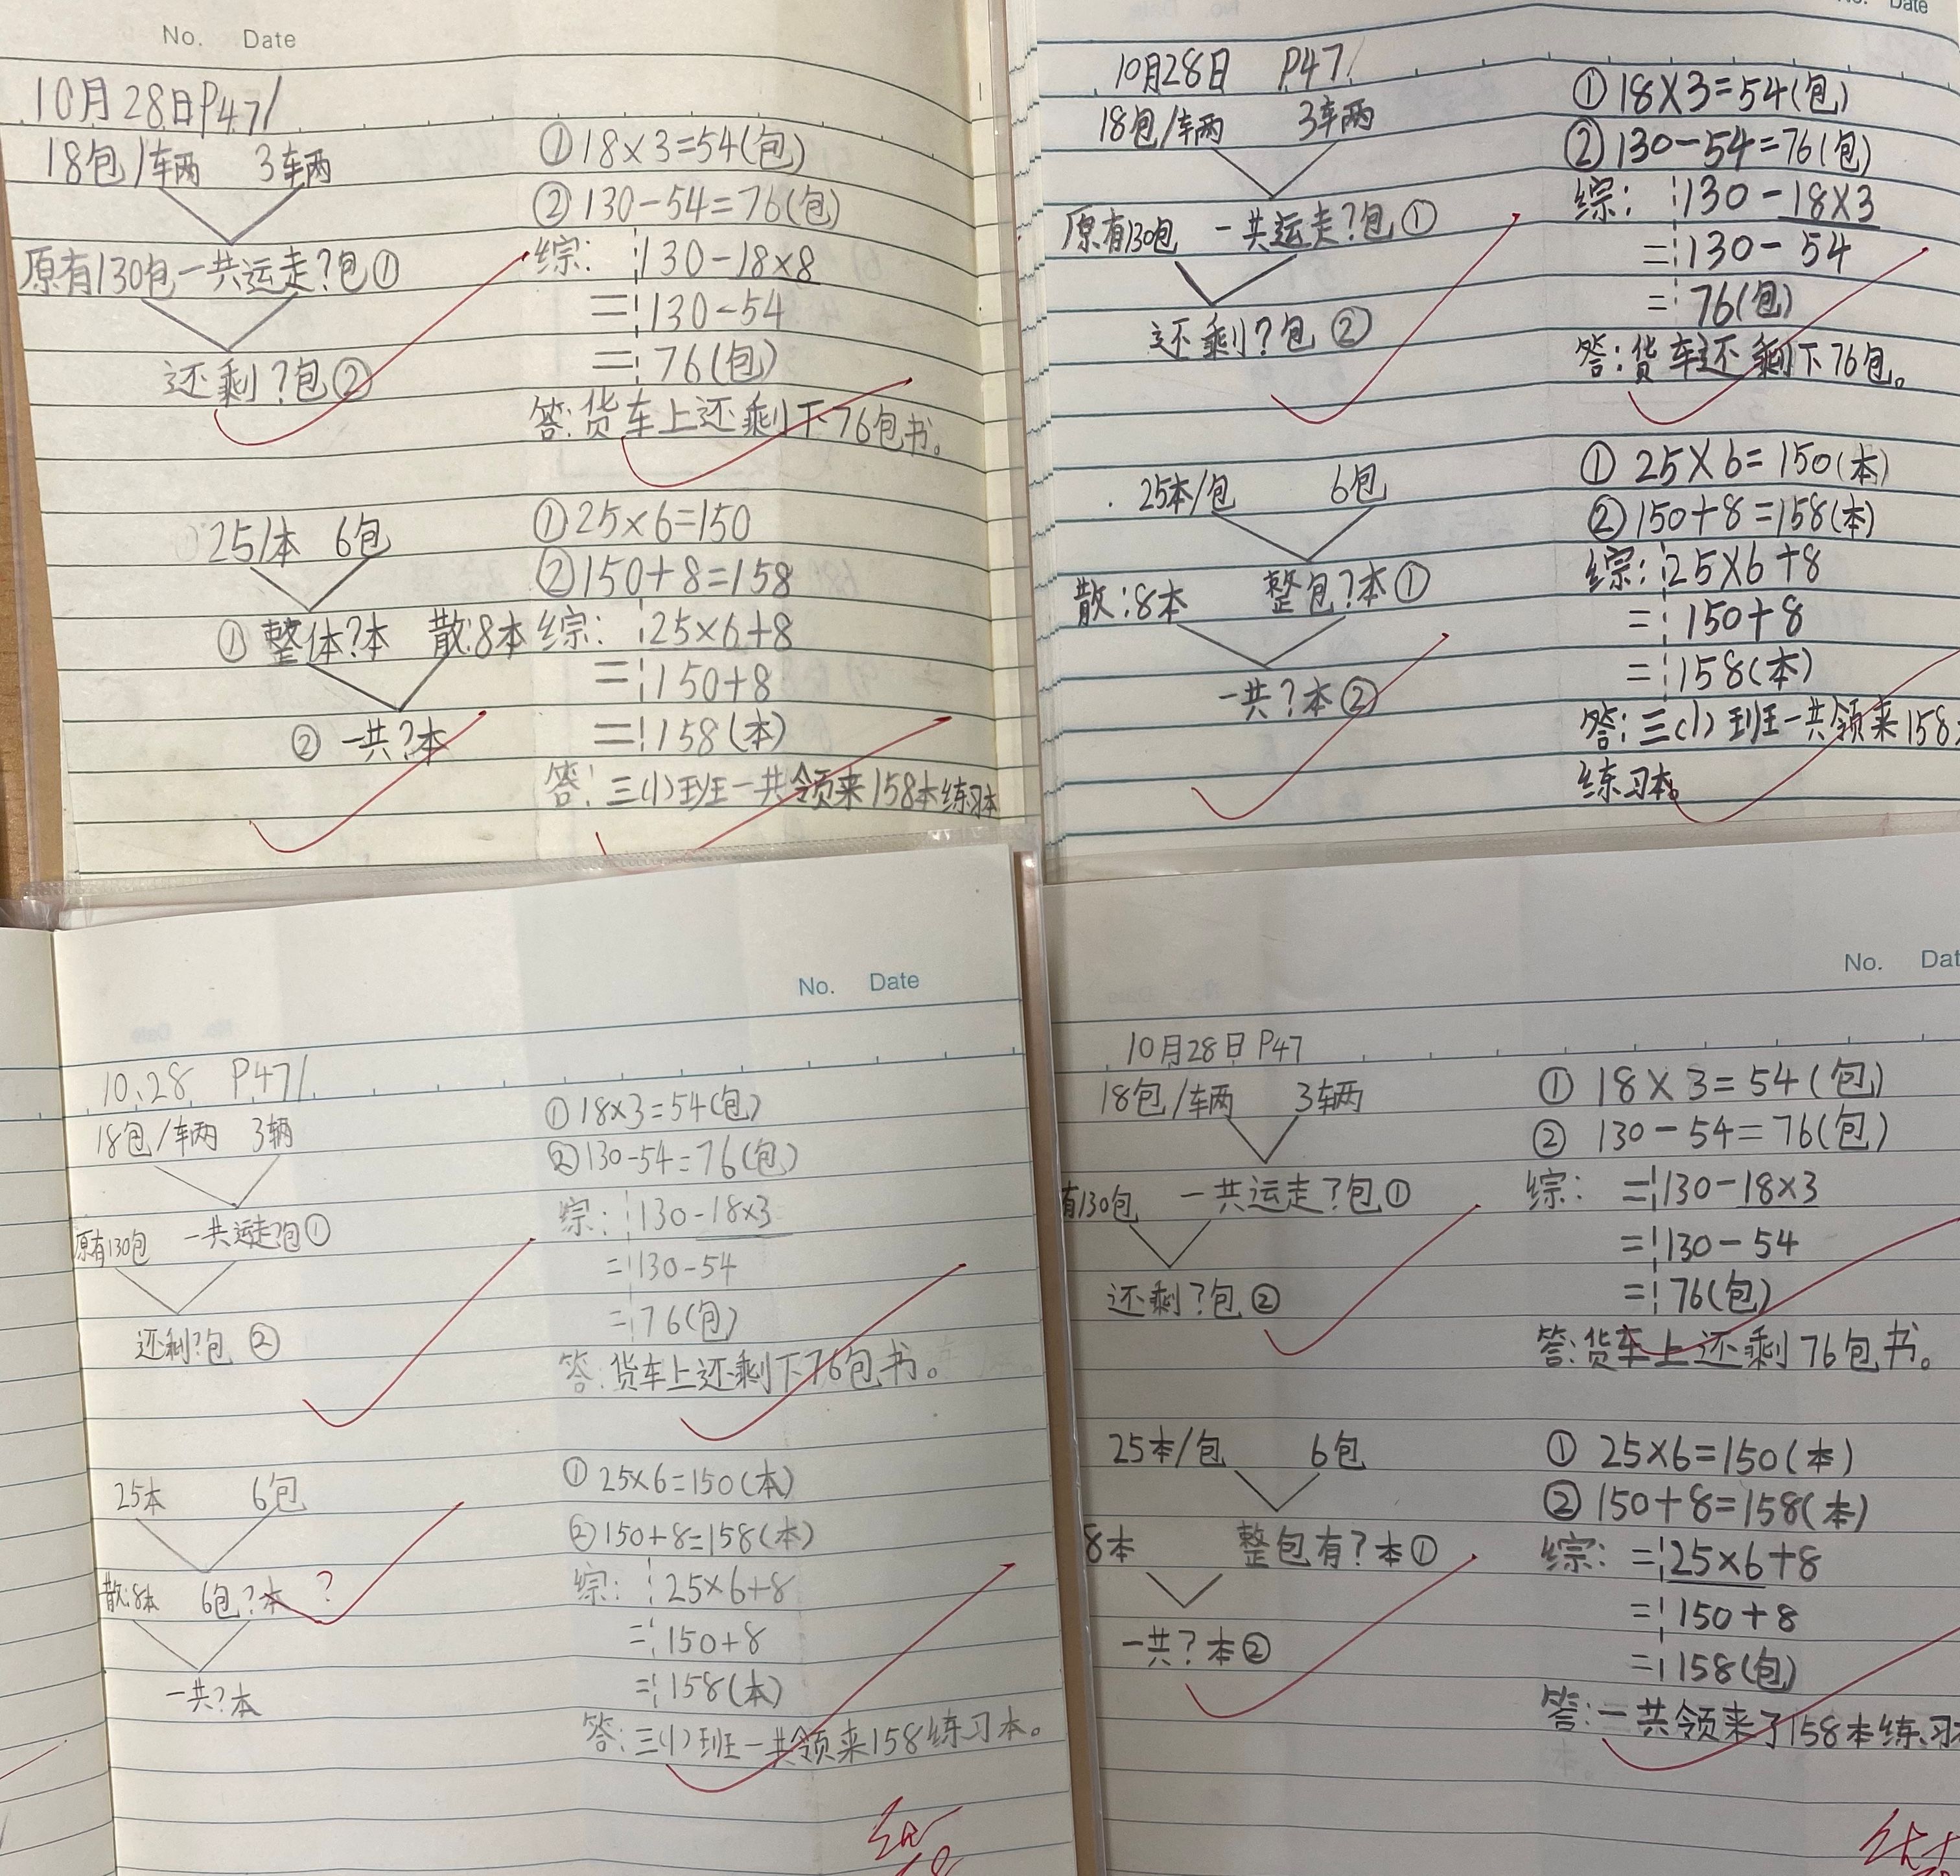 No. Date
10月28日P47/
18包/辆 3辆
原有130包 一共运走?包①
还剩?包②
①18×3=54(包)
②130-54=76(包)
综: 130-18×8
=130-54
=76(包)
答:货车上还剩下76包书。
25/本 6包
①整体?本 散:8本
②一共?本
①25×6=150
②150+8=158
综: 25×6+8
=150+8
=158(本)
答:三(1)班一共领来158本练习本
Date
10月28日 P47/
18包/辆 3辆
原有130包 一共运走?包①
还剩?包②
①18×3=54(包)
②130-54=76(包)
综: 130-18×3
=130-54
=76(包)
答:货车还剩下76包。
25本/包 6包
散:8本 整包?本①
一共?本②
①25×6=150(本)
②150+8=158(本)
综: 25×6+8
=150+8
=158(本)
答:三(1)班一共领来158
练习本。
No. Date
10.28 P47/
18包/辆 3辆
原有130包 一共运走?包①
还剩?包②
①18×3=54(包)
②130-54=76(包)
综: 130-18×3
=130-54
=76(包)
答:货车上还剩下76包书。
25本 6包
散:8本 6包?本 ?
一共?本
①25×6=150(本)
②150+8=158(本)
综: 25×6+8
=150+8
=158(本)
答:三(1)班一共领来158练习本。
No. Dat
10月28日 P47
18包/辆 3辆
有130包 一共运走?包①
还剩?包②
①18×3=54(包)
②130-54=76(包)
综: =130-18×3
=130-54
=76(包)
答:货车上还剩76包书。
25本/包 6包
8本 整包有?本①
一共?本②
①25×6=150(本)
②150+8=158(本)
综: =25×6+8
=150+8
=158(包)
答:一共领来了158本练习